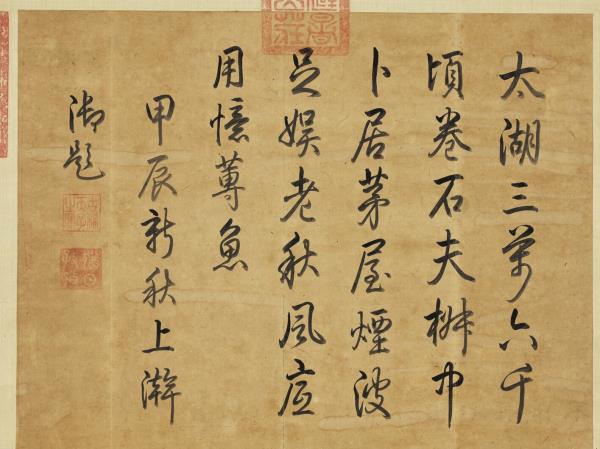 避暑山莊
太湖三萬六千
頃卷石夫椒中
卜居茅屋煙波
足娛老秋風底
用憶蓴魚
甲辰新秋上澣
御題